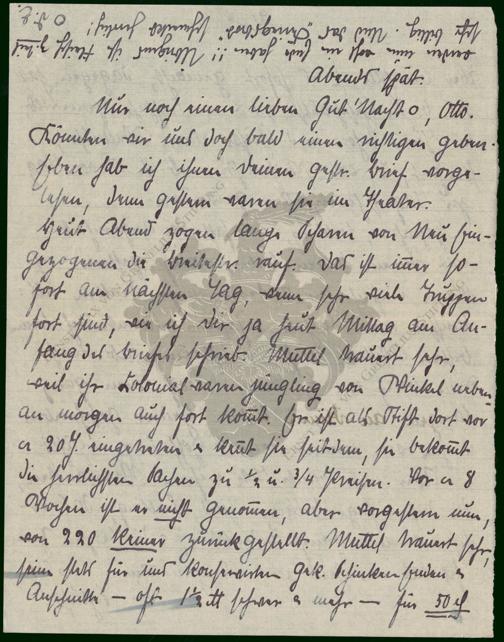 Abends spät.
Nur noch einen lieben Gut' Nacht o, Otto.
Könnten wir uns doch bald einen richtigen geben.
soeben hab ich ihnen deinen gestr. Brief vorge-
lesen, denn gestern waren sie im Theater.
Heut Abend zogen lange Scharen von Neu Ein-
gezogenen die Breitestr. rauf. Das ist immer so-
fort am nächsten Tag, wenn sehr viele Truppen
fort sind, wie ich Dir ja heut Mittag am An-
fang des Briefes schrieb. Muttel trauert sehr,
weil ihr Kolonialwarenjüngling von Winkel neben-
an morgen auch fort kommt. Er ist als Stift dort vor
ca 20 J. eingetreten & kennt sie seitdem, sie bekommt
die herrlichsten Sachen zu 1/2 u. 3/4 Preisen. Vor ca 8
Wochen ist er nicht genommen, aber vorgestern nun,
von 220 keiner zurückgestellt. Muttel trauert sehr,
stets für uns Konserven gek. Schinkenenden &
Anschnitte — oft 1 1/2 ℔ schwer & mehr — für 50 ₰